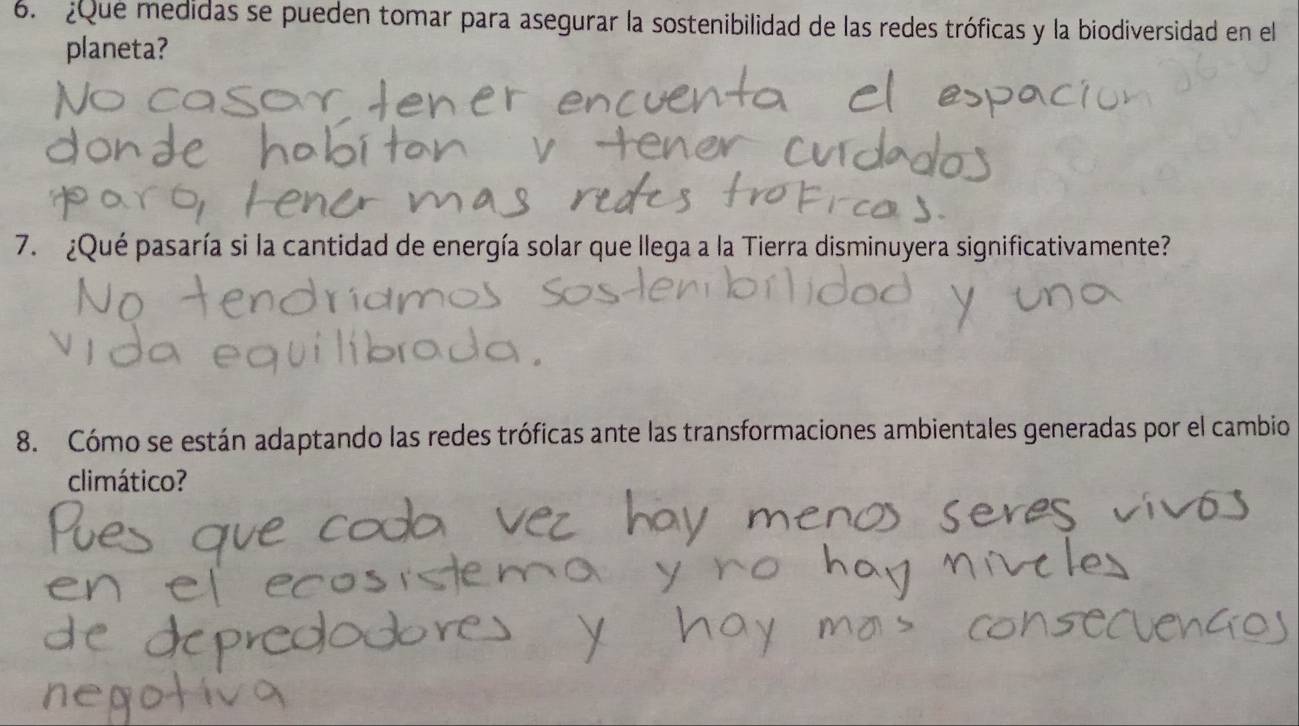 6. ¿Qué medidas se pueden tomar para asegurar la sostenibilidad de las redes tróficas y la biodiversidad en el
planeta?
No casar, tener encuenta el espacion
donde habitan y tener curdados
para, tener mas redes troficas.
7. ¿Qué pasaría si la cantidad de energía solar que llega a la Tierra disminuyera significativamente?
No tendriamos sostenibilidad y una
vida equilibrada.
8. Cómo se están adaptando las redes tróficas ante las transformaciones ambientales generadas por el cambio
climático?
Pues que cada vez hay menos seres vivos
en el ecosistema y no hay niveles
de depredadores y hay mas consecuencias
negativa